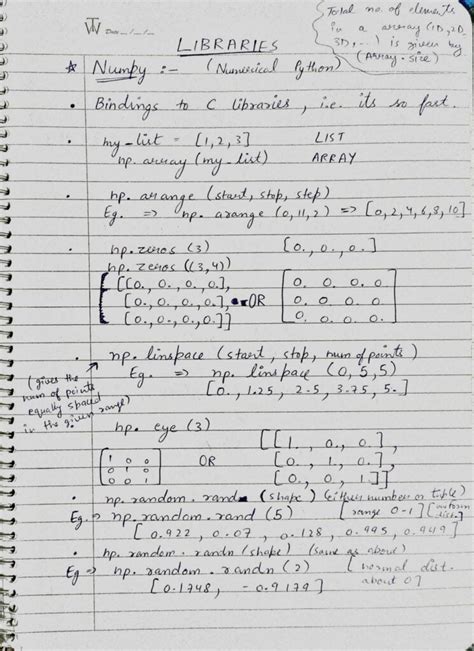 TW Date __/__/__
Total no. of elements
in a array (1D, 2D,
3D, ...) is given by
(Array.size)
LIBRARIES
* Numpy :- (Numerical Python)
• Bindings to C libraries, i.e. its so fast.
• my_list = [1, 2, 3] LIST
np.array (my_list) ARRAY
• np.arange (start, stop, step)
Eg. => np.arange (0, 11, 2) => [0, 2, 4, 6, 8, 10]
• np.zeros (3) [0., 0., 0.]
np.zeros ((3,4))
[[0., 0., 0., 0.], 0. 0. 0. 0.
[0., 0., 0., 0.], OR 0. 0. 0. 0.
[0., 0., 0., 0.]] 0. 0. 0. 0.
• np.linspace (start, stop, num of points)
(gives the
num of points
equally spaced
in the given range)
Eg. => np.linspace (0, 5, 5)
[0., 1.25, 2.5, 3.75, 5.]
• np.eye (3) [[1., 0., 0.],
1 0 0
0 1 0 OR [0., 1., 0.],
0 0 1 [0., 0., 1.]]
• np.random.rand (shape) (either number or tuple)
Eg. => np.random.rand (5) [range 0-1] [uniform
dist.]
[0.922, 0.07, 0.128, 0.995, 0.949]
• np.random.randn (shape) (same as above)
Eg => np.random.randn (2) [normal dist.
about 0]
[0.1748, -0.9179]